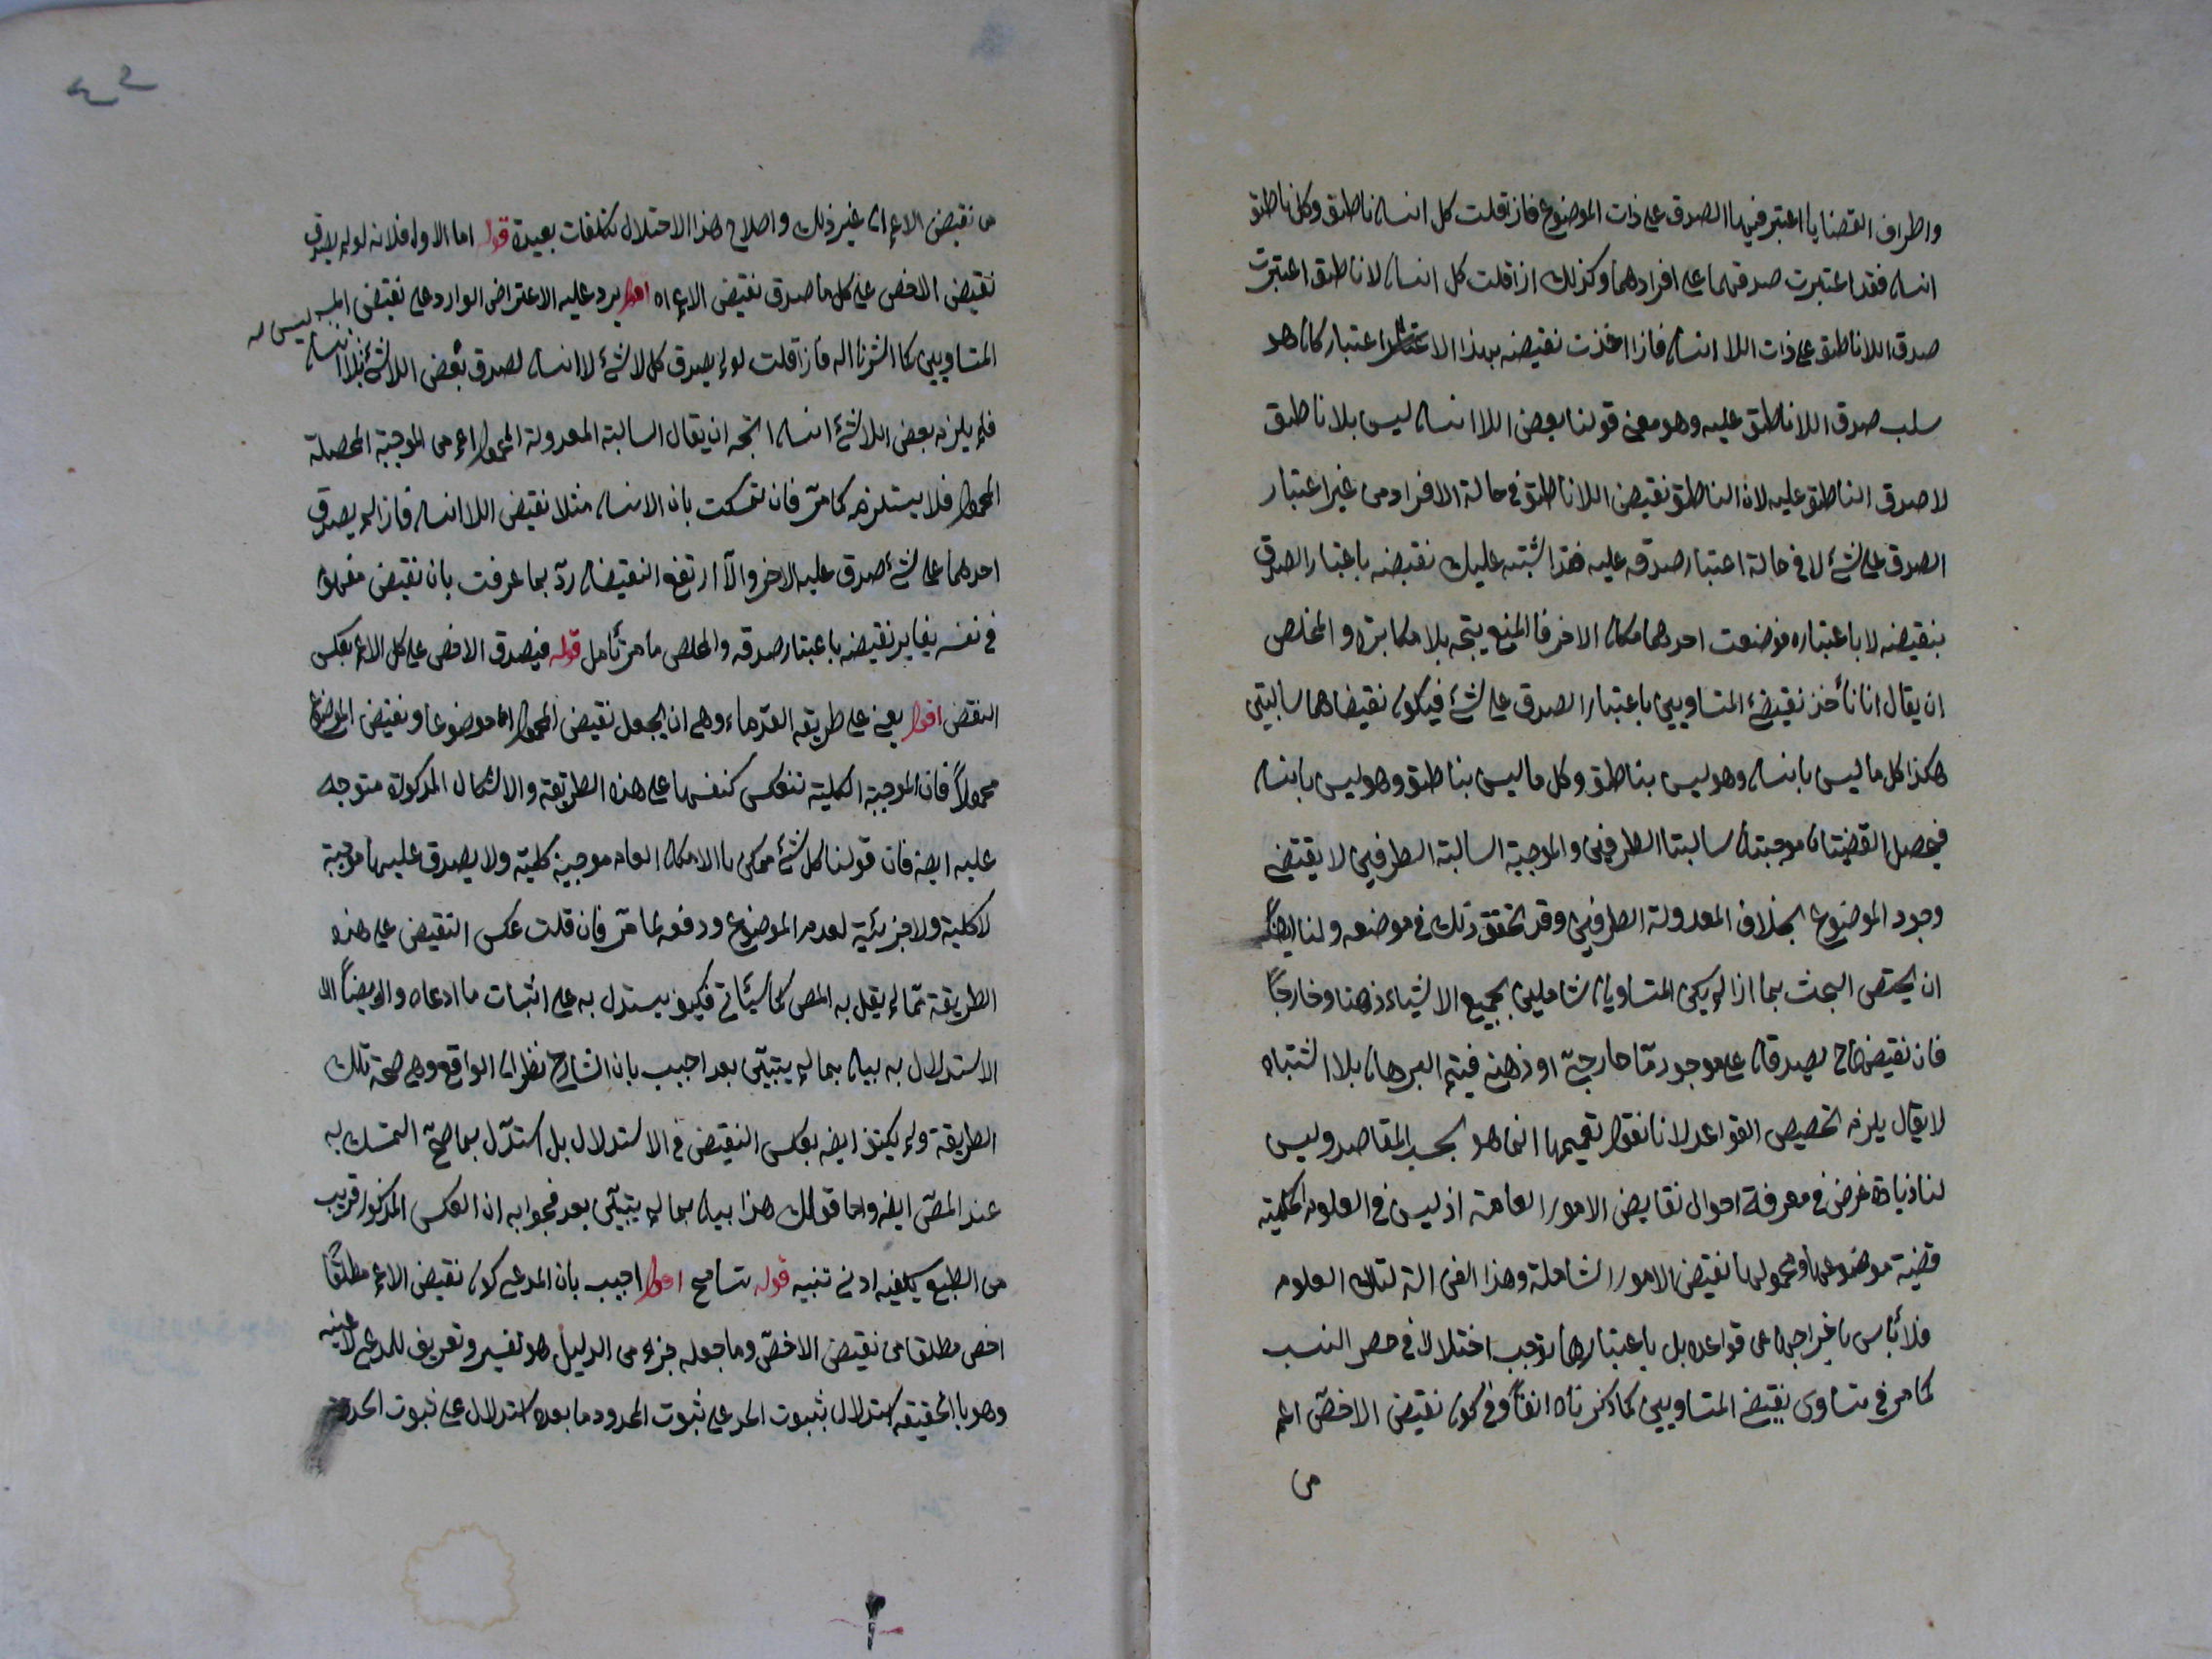 واطراف القضايا اعتبر فيها الصدق على ذات الموضوع فاذا قلت كل انسان ناطق وكل ناطق
انسان فقد اعتبرت صدقهما على افرادهما وكذلك اذا قلت كل انسان لا ناطق اعتبرت
صدق اللا ناطق على ذات اللا انسان فاذا اخذت نقيضه بهذا الاعتبار كان هو
سلب صدق اللا ناطق عليه وهو معنى قولنا بعض اللا انسان ليس بلا ناطق
لا صدق الناطق عليه لان الناطق نقيض اللا ناطق في حالة الافراد من غير اعتبار
الصدق على شئ لا في حالة اعتبار صدقه عليه فقد اشتبه عليك نقيضه باعتبار الصدق
بنقيضه لا باعتباره فوضعت احدهما مكان الاخر فالمنع يتجه بلا مكابرة والمخلص
ان يقال انا نأخذ نقيضئ المتساويين باعتبار الصدق على شئ فيكون نقيضاهما سالبتين
هكذا كل ما ليس بانسان وهو ليس بناطق وكل ما ليس بناطق وهو ليس بانسان
فيحصل القضيتان موجبتان سالبتا الطرفين والموجبة السالبة الطرفين لا يقتضى
وجود الموضوع بخلاف المعدولة الطرفين وقد تحقق ذلك في موضعه ولنا ايضاً
ان يختص البحث بما اذا لم يكن المتساويان شاملين لجميع الاشياء ذهنا وخارجاً
فان نقيضهما ح يصدقان على موجود مّا خارجىّ او ذهنى فيتم البرهان بلا اشتباه
لا يقال يلزم تخصيص القواعد لانا نقول تعميمها انما هو بحسب المقاصد وليس
لنا زيادة غرض في معرفة احوال نقايض الامور العامة اذ ليس في العلوم الحكمية
قضية موضوعها او محمولها نقيض الامور الشاملة وهذا الفن الة لتلك العلوم
فلا بأس باخراجها عن قواعده بل باعتبارها يوجب اختلالا في حصر النسب
كما مر في تساوى نقيضى المتساويين كما ذكرناه انفاً وفي كون نقيض الاخصّ اعم
من
من نقيض الاعم الى غير ذلك واصلاح هذا الاختلال بتكلفات بعيدة قوله اما الاول فلانه لو لم يصدق
نقيض الاخص على كل ما صدق نقيض الاعم اه اقول يرد عليه الاعتراض الوارد على نقيضى
المتساويين كما اشرنا اليه فاذا قلت لو لم يصدق كل لا شئ لا انسان لصدق بعض اللا شئ ليس بلا انسان
فلم يلزم بعض اللا شئ انسان اتجه ان يقال السالبة المعدولة المحمول اعم من الموجبة المحصلة
المحمول فلا يستلزم كما مرّ فان تمسكت بان الانسان مثلا نقيض اللا انسان فاذا لم يصدق
احدهما على شئ صدق عليه الاخر والّا ارتفع النقيضان ردّ بما عرفت بان نقيض مفهوم
في نفسه يغاير نقيضه باعتبار صدقه والمخلص ما مرّ تأمل قوله فيصدق الاخص على كل الاعم بعكس
النقض اقول يعنى على طريقة القدماء وهى ان يجعل نقيض المحمول موضوعا ونقيض الموضوع
محمولاً فان الموجبة الكلية تنعكس كنفسها على هذه الطريقة والاشكال المذكور متوجه
عليه ايضه فان قولنا كل شئ ممكن بالامكان العام موجبة كلية ولا يصدق عليها موجبة
لا كلية ولا جزئية لعدم الموضوع ودفعه كما مرّ فان قلت عكس النقيض على هذه
الطريقة ممّا لم يقل به المص كما سيأتي فكيف يستدل به على اثبات ما ادعاه وايضاً
الاستدلال به بيان بما لم يتبيّن بعد اجيب بان الشارح نظر الى الواقع وهى صحة تلك
الطريقة ولم يكتف ايضه بعكس النقيض في الاستدلال بل استدّل بما صحّ التمسك به
عند المصّ ايضه واما قولك هذا بيان بما لم يتبيّن بعد فجوابه ان العكس المذكور قريب
من الطبع يكفيه ادنى تنبيه قوله تسامح اقول اجيب بان المدعى كون نقيض الاعم مطلقاً
اخص مطلقا من نقيض الاخصّ وما جعله جزء من الدليل هو تفسير وتعريف للمدعى لا عينه
وهو بالحقيقة استدلال بثبوت الحد على ثبوت المحدود وما بعده استدلال على ثبوت الحد